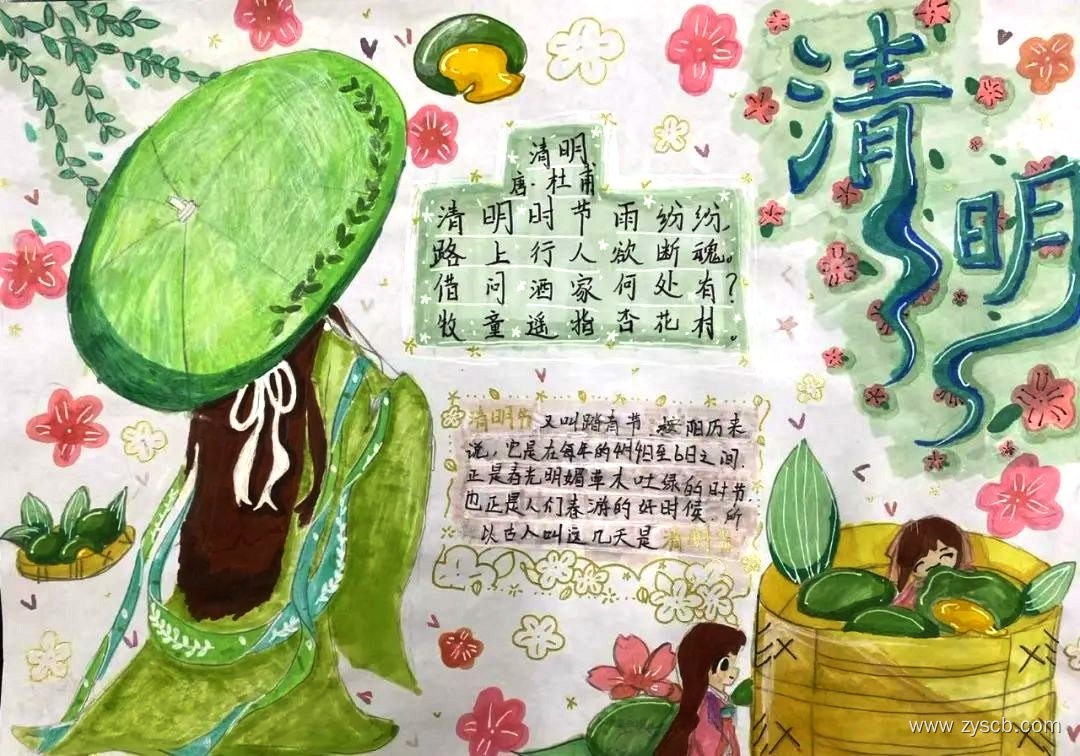 清明
清明
唐·杜甫
清明时节雨纷纷,
路上行人欲断魂。
借问酒家何处有?
牧童遥指杏花村。
清明节又叫踏青节 按阳历来
说,它是在每年的4月4日至6日之间.
正是春光明媚草木吐绿的时节.
也正是人们春游的好时候.所
以古人叫这几天是清明节
www.zyscb.com